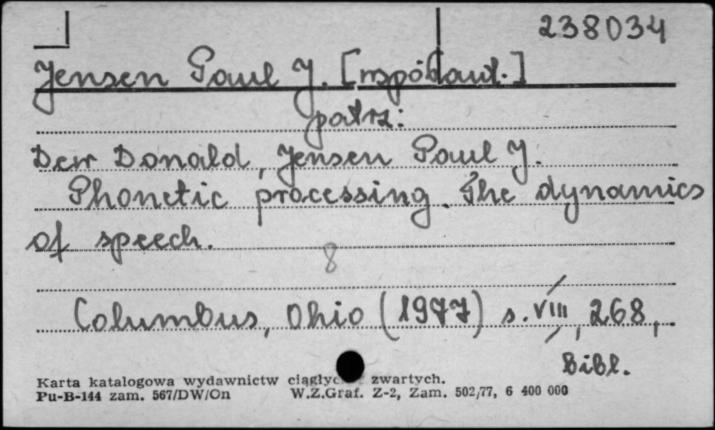 238034
Jensen Paul J. [współaut.]
patrz:
Dew Donald, Jensen Paul J.
Phonetic processing. The dynamics
of speech.
8
Columbus, Ohio (1977) s. VIII, 268,
Bibl.
Karta katalogowa wydawnictw ciągłyc zwartych.
Pu-B-144 zam. 567/DW/On W.Z.Graf. Z-2, Zam. 502/77, 6 400 000